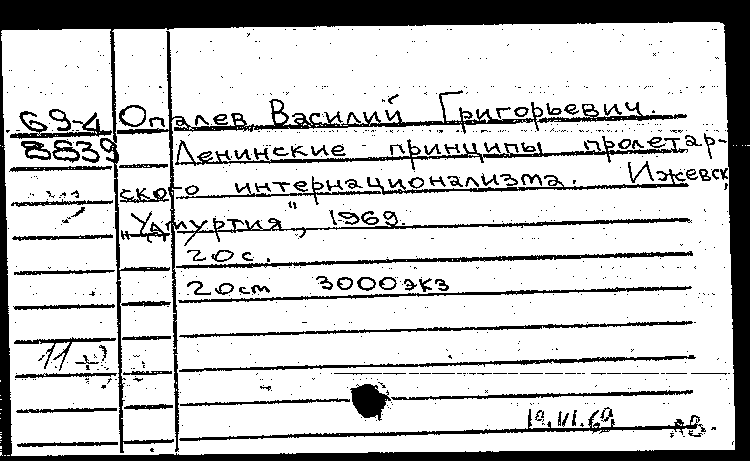 69-4 Опалев, Василий Григорьевич.
8839 Ленинские принципы пролетар-
ского интернационализма. Ижевск,
„Удмуртия", 1969.
20 с.
20 см 3000 экз
11
19.VI.69